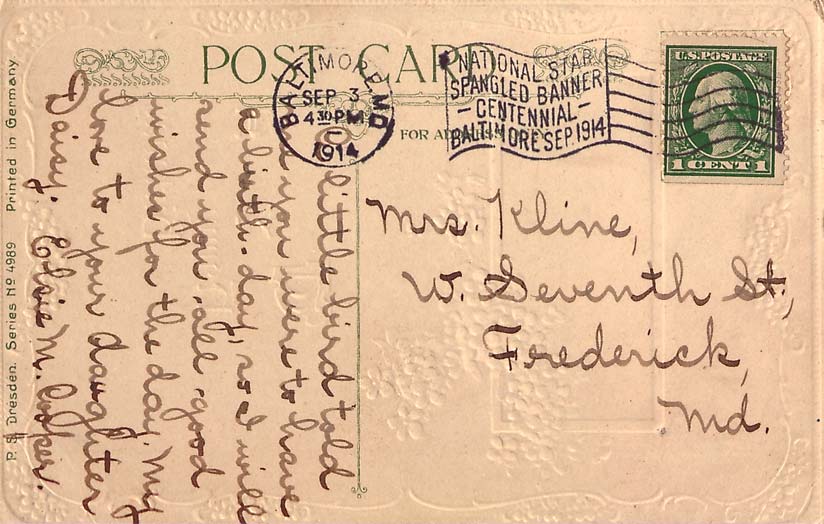 POST CARD
BALTIMORE, MD
SEP 3
4 30 PM
1914
NATIONAL STAR
SPANGLED BANNER
- CENTENNIAL -
BALTIMORE SEP. 1914
U.S. POSTAGE
1 CENT 1
FOR
little bird told
you were to have
a birth-day, so I will
send you all good
wishes for the day. My
love to your daughter
Daisy. Elsie
Mrs. Kline,
W. Seventh St.,
Frederick,
Md.
P. S. Dresden. Series No 4989 Printed in Germany